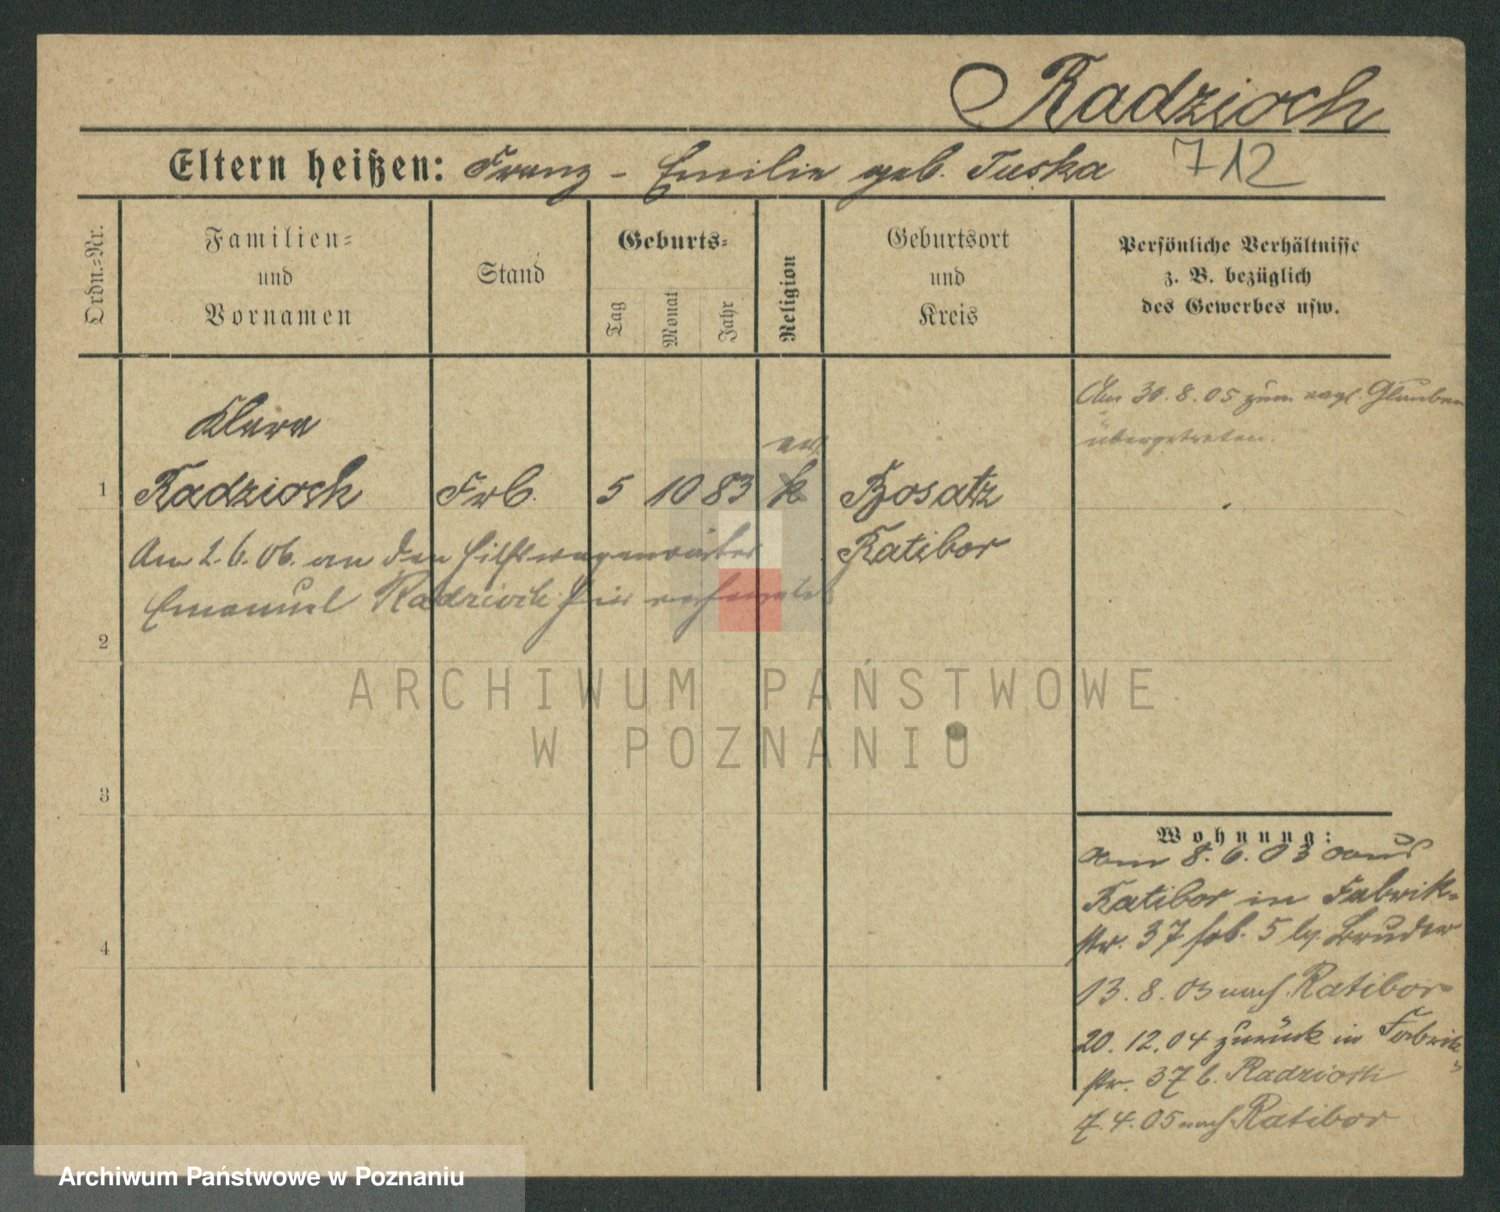 Radzioch
Eltern heißen: Franz - Emilie geb. Tuska 712
Ordn.-Nr.
Familien-
und
Vornamen
Stand
Geburts-
Tag
Monat
Jahr
Religion
Geburtsort
und
Kreis
Persönliche Verhältnisse
z. B. bezüglich
des Gewerbes usw.
Am 30.8.05 zum evgl. Glauben
übergetreten.
Klara
ev.
1 Radzioch Frl. 5 10 83 k Bosatz
Ratibor
Am 2.6.06. an den Hilfswagenwärter
Emanuel Radzioch hier verheiratet
2
ARCHIWUM PAŃSTWOWE
W POZNANIU
3
4
Wohnung:
am 8.6.03 aus
Ratibor in Fabrik-
str. 37 Bruder
13.8.03 nach Ratibor
20.12.04 zurück in Fabrik-
str. 37 b. Radzioch
7.4.05 nach Ratibor
Archiwum Państwowe w Poznaniu